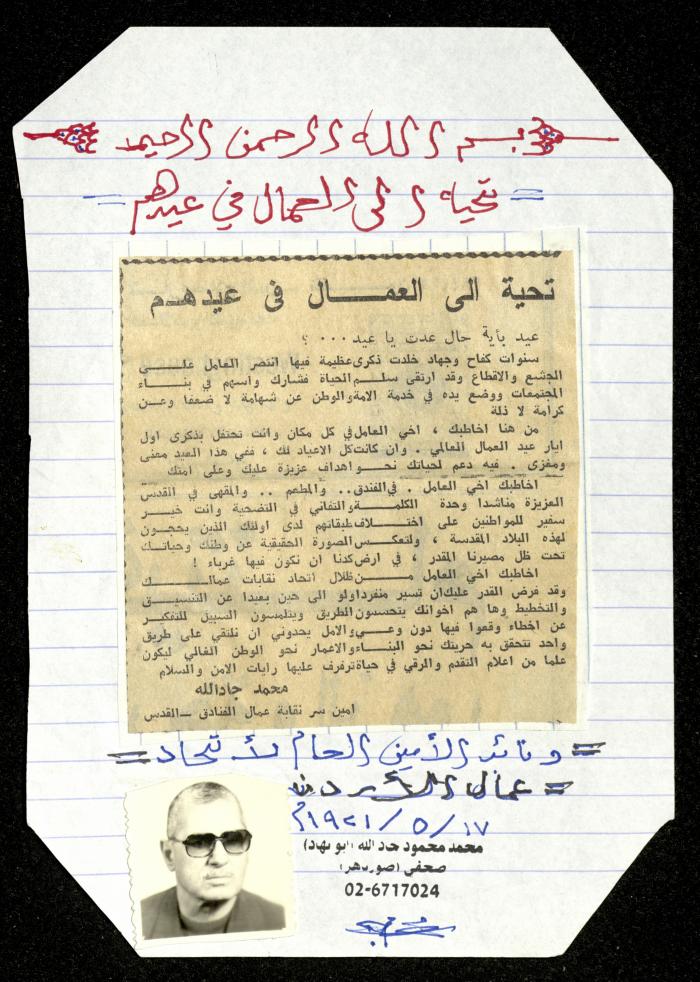 بسم الله الرحمن الرحيم
= تحية إلى العمال في عيدهم =
تحية الى العمـــال فى عيدهـم
عيد بأية حال عدت يا عيد . . . ؟
سنوات كفاح وجهاد خلدت ذكرى عظيمة فيها انتصر العامل علـــى
الجشع والاقطاع وقد ارتقى سلـــم الحياة فشارك واسهم في بنـــاء
المجتمعات ووضع يده في خدمة الامة والوطن عن شهامة لا ضعفا وعـن
كرامة لا ذلة
من هنا اخاطبك ، اخي العامل في كل مكان وانت تحتفل بذكرى اول
ايار عيد العمال العالمي . وان كانت كل الاعياد لك ، ففي هذا العيد معنى
ومغزى . فيه دعم لحياتك نحـــو اهداف عزيزة عليك وعلى امتك
اخاطبك اخي العامل . في الفندق .. والمطعم .. والمقهى في القدس
العزيزة مناشدا وحدة الكلمـــة والتفاني في التضحية وانت خيـــر
سفير للمواطنين على اختـــلاف طبقاتهم لدى اولئك الذين يحجـــون
لهذه البلاد المقدسة ، ولتعكـــس الصورة الحقيقية عن وطنك وحياتـك
تحت ظل مصيرنا المقدر ، في ارض كدنا ان نكون فيها غرباء !
اخاطبك اخي العامل مـــن ظلال اتحاد نقابات عمالـــــك
وقد فرض القدر عليك ان تسير منفردا ولو الى حين بعيدا عن التنسيـــق
والتخطيط وها هم اخوانك يتحسسون الطريق ويتلمسون السبيل للتفكيـر
عن اخطاء وقعوا فيها دون وعـــي والامل يحدوني ان نلتقي على طريق
واحد تتحقق به حريتك نحو البنـــاء والاعمار نحو الوطن الغالي ليكون
علما من اعلام التقدم والرقي في حياة ترفرف عليها رايات الامن والسلام
محمد جادالله
امين سر نقابة عمال الفنادق ــ القدس
= ونائب الأمين العام لأتحاد =
عمال الأردن =
١٧/٥/١٩٢١م
محمد محمود جاد الله (ابو نهاد)
صحفي (صورباهر)
02-6717024